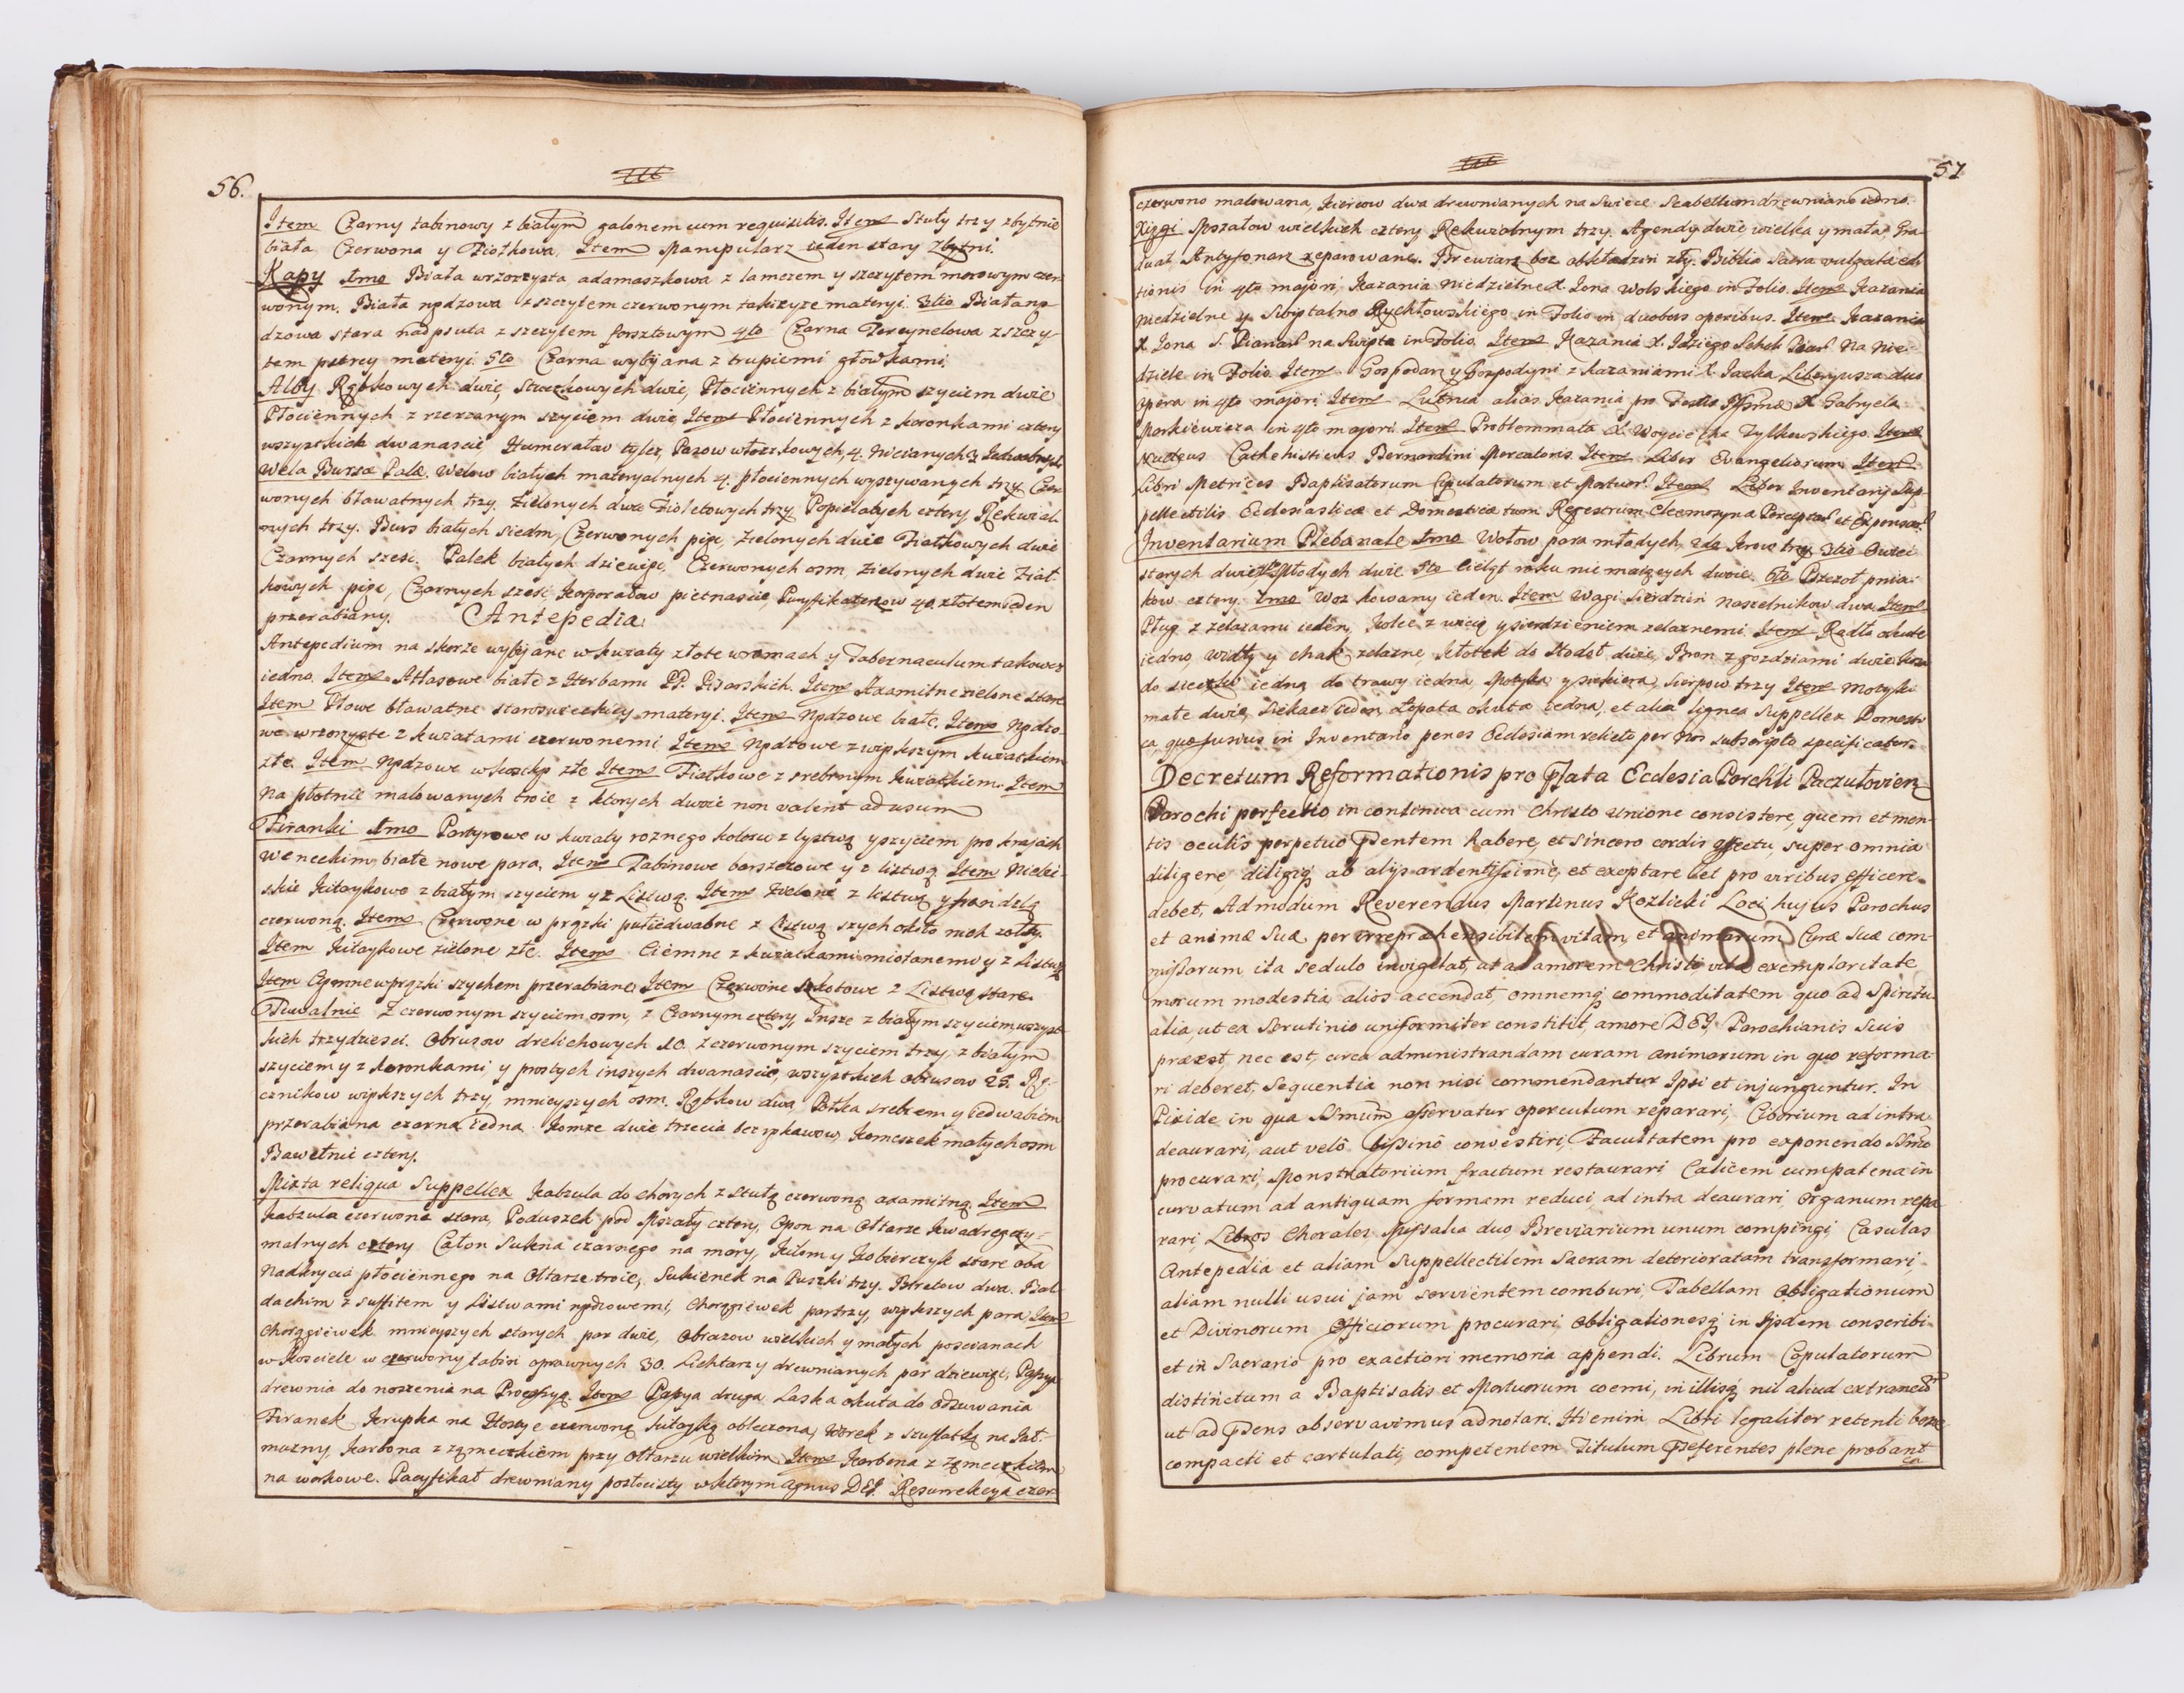 56.
Item Czarny tabinowy z białym galonem cum requisitis. Item Stuły trzy zbytnie
biała Czerwona y Fiołkowa, Item Manipularz ieden stary Zbytni.
Kapy 1mo Biała wzorzysta adamaszkowa z lamczem y szczytem morowym czer
wonym. Biała nędzowa z szczytem czerwonym takieyze materyi. 3tio Biała nę
dzowa stara nadpsuta z szczytem forsztowym 4to Czarna Tercynelowa z szczy-
tem pstrey materyi 5to Czarna wybijana z trupiemi głowkami.
Alby Rąbkowych dwie, Struczkowych dwie, Płociennych z białym szyciem dwie
Płociennych z rzezanym szyciem dwie Item Płociennych z koronkami cztery
wszystkich dwanascie, Humerałow tyleż, Pasow włoczkowych 4. Nicianych 3 Jedwabnych
Wela Bursæ Palæ. Welow białych materyalnych 4. płociennych wyszywanych trzy Czer
wonych bławatnych trzy. Zielonych dwa Fioletowych trzy Popielatych cztery Rekwial-
nych trzy. Burs białych siedm, Czerwonych pięć, Zielonych dwie Fiałkowych dwie
Czarnych szesc. Palek białych dziewięc, Czerwonych osm, Zielonych dwie Fiał
kowych pięc, Czarnych szesc Korporałow pietnascie, Puryfikaterzow 40. złotem ieden
przerabiany. Antepedia.
Antepedium na skorze wybijane w kwiaty złote w ramach y Tabernaculum takowez
iedno. Item Atłasowe białe z Herbami PP. Pisarskich. Item Axamitne zielone stare
Item Płowe bławatne staroswieckiey materyi. Item Nędzowe białe. Item Nędzo
we wzorzyste z kwiatami czerwonemi Item Nędzowe z większym kwiatkiem
złe. Item Nędzowe w kostkę złe Item Fiałkowe z srebrnym kwiatkiem. Item
Na płotnie malowanych troie z ktorych dwoie non valent ad usum
Firanki 1mo Partyrowe w kwiaty roznego koloru z lystwą y szyciem pro krajach
Weneckim, białe nowe para, Item Tabinowe barszczowe y z listwą Item Niebi-
skie Kitaykowe z białym szyciem y z Listwą. Item Zielone z listwą y frandzlą
czerwoną. Item Czerwone w prązki pułiedwabne z Listwą szych około nich zołty.
Item Kitaykowe zielone złe. Item Ciemne z kwiatkami miotanemi y z Listwą
Item Ciemne w prązki szychem przerabiane, Item Czerwone szkotowe z Listwą stare.
Tuwalnie Z czerwonym szyciem osm, z Czarnym cztery, Insze z białym szyciem wszyst-
kich trzydziesci. Obrusow drelichowych 10. z czerwonym szyciem trzy, z białym
szyciem y z koronkami, y prostych inszych dwanascie, wszystkich obrusow 25. Rę-
cznikow większych trzy, mnieyszych osm. Rąbkow dwa, Potka srebrem y iedwabiem
przerabiana czarna iedna. Komze dwie trzecia bez rękawow, Komeszek małych osm
Bawełnic cztery.
Mixta reliqua Suppellex Kabzula do chorych z stułą czerwoną axamitną. Item
Kabzula czerwona stara, Poduszek pod Mszały cztery, Opon na Ołtarze Kwadragezy-
malnych cztery Całon Sukna czarnego na mary, Kilim y Kobierczyk stare oba
Nadkrycia płociennego na Ołtarze troie, Sukienek na Puszki trzy. Biretow dwa. Bal-
dachim z suffitem y Listwami nędzowemi, Chorągiewek par trzy, większych para, Item
Chorągiewek mnieyszych starych par dwie, Obrazow wielkich y małych po scianach
w kosciele w czerwony tabin oprawnych 30. Lichtarzy drewnianych par dziewięć, Passya
drewnia do noszenia na Procesyą. Item Passya druga Laska okuta do odsuwania
Firanek Krupka na Hostye czerwoną kitayką obleczona, Worek z szuflatką na Jał-
muzny, Karbona z zameczkiem przy Ołtarzu wielkim Item Karbona z zameczkiem
na workowe. Pacyfikał drewniany pozłocisty w ktorym Agnus DEI. Resurrekcya czer-
57
czerwono malowana, Kierzow dwa drewnianych na Swiece Scabellum drewniane iedno.
Xięgi Mszałow wielkich cztery, Rekwialnym trzy. Agendy dwie wielka y mała, Gra-
duał, Antyfonarz reparowane. Brewiarz bez okładzin zły. Biblia Sacra vulgatæ edi-
tionis in 4to majori, Kazania Niedzielne X. Jona Wolskiego in Folio Item Kazania
Niedzielne y Swiętalne Rychłowskiego in Folio in duobus operibus. Item Kazania
X. Jona S. Pianas na Swięta in Folio. Item Kazania X. Idziego Schol: Piar: Na Nie-
dziele in Folio Item Gospodarz y Gospodyni z Kazaniami X. Jacka Liberyusza duo
opera in 4to majori Item Lutnia alias Kazania pro Festis PSsmæ X. Gabryela
Morkiewicza in 4to majori Item Problemmata X. Woyciecha Tylkowskiego. Item
Nucleus Cathehisticus Bernardini Mercatoris Item Liber Evangeliorum Item
Libri Metrices Baptisatorum Copulatorum et Mortuor: Item Liber Inventarij Sup-
pellectilis Ecclesiasticæ et Domesticæ tum Regestrum Eleemosynæ Perceptar: et Expensar:
Inventarium Plebanale 1mo Wołow para młodych, 2do Krow trzy 3tio Owiec
starych dwie, 4to Młodych dwie 5to Cieląt roku nie maiących dwoie. 6to Pszczoł pnia-
kow cztery. 7mo Woz kowany ieden. Item Wagi Sierdzien Naszelnikow dwa Item
Pług z zelazami ieden, Kolce z wicią y sierdzieniem zelaznemi. Item Radło okute
iedno widły y chak zelazne, Kłotek do Stodoł dwie, Bron z gozdziami dwie Kosa
do sieczki iedna do trawy iedna Motyka y siekiera, Sierpow trzy Item Motyki
małe dwie, Siekacz ieden, Łopata okuta iedna, et alia lignea Suppellex Domesti
ca, quo fusius in Inventario penes Ecclesiam relicto per Nos subscripto specificatur.
Decretum Reformationis pro Pfata Ecclesia Parchli Paczułtovien
Parochi perfectio in continua cum Christo Unione consistere, quem et men-
tis oculis perpetuo Psentem habere, et sincero cordis affectu, super omnia
diligere, diligiq ab alijs ardentissime, et exoptare et pro viribus efficere
debet, Admodum Reverendus Martinus Kozlicki Loci hujus Parochus
et animæ Suæ per irrepræhensibilem vitam, et animarum Curæ Suæ com-
missarum ita sedulo invigilat, ut ad amorem Christi vitæ exemplaritate
morum modestia alios accendat, omnemq commoditatem quo ad Spiritu-
alia, ut ex Scrutinio uniformiter constitit, amore DEI, Parochianis Suis
præest, nec est, circa administrandam curam animarum in quo reforma-
ri deberet, Sequentia non nisi commendantur Ipsi et injunguntur. In
Pixide in qua SSmum asservatur operculum reparari, Ciborium ad intra
deaurari, aut velo byssino convestiri, Facultatem pro exponendo SSmo
procurari, Monstratorium fractum restaurari Calicem cum patena in
curvatum ad antiquam formam reduci, ad intra deaurari, Organum repa-
rari, Libros Chorales, Missalia duo, Breviarium unum compingi, Casulas
Antepedia et aliam Suppellectilem Sacram deterioratam transformari,
aliam nulli usui jam servientem comburi, Tabellam Obligationum
et Divinorum Officiorum procurari, Obligationesq in Ijsdem conscribi
et in Sacrario pro exactiori memoria appendi. Librum Copulatorum
distinctum a Baptisatis et Mortuorum coemi, in illisq nil aliud extraneum
ut ad Psens observavimus adnotari. Hi enim Libri legaliter retenti bene
compacti et cartulati, competentem Titulum Pseferentes plene probant
ea